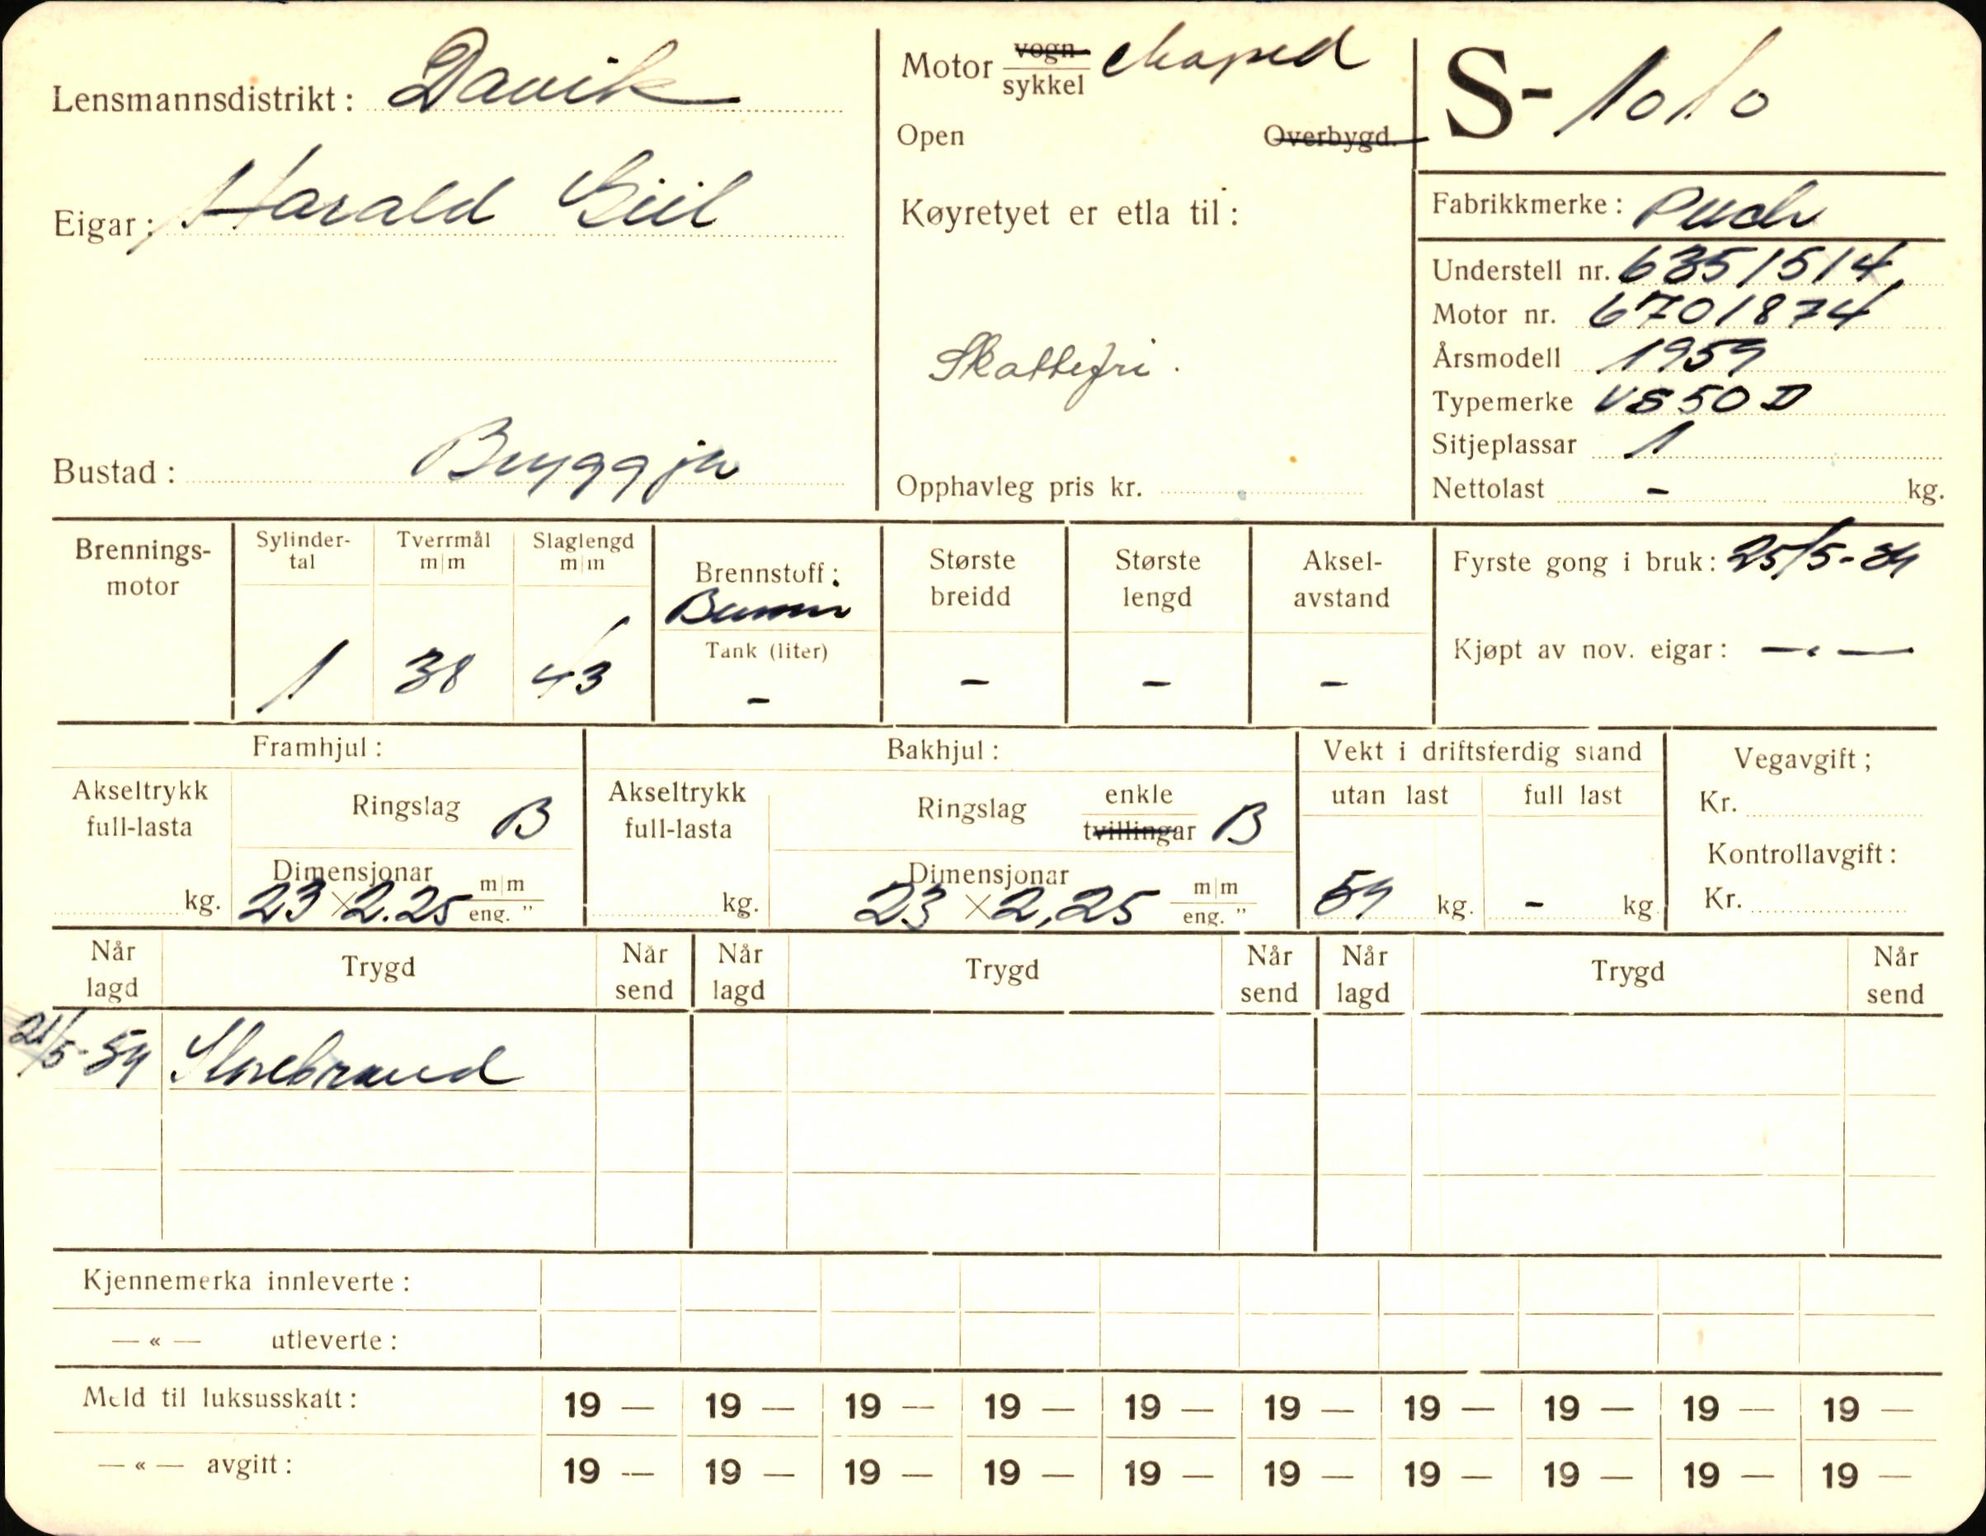 Lensmannsdistrikt: Davik
Eigar: Harald
Bustad: Bryggja
Motor vogn sykkel Moped
Open Overbygd.
Køyretyet er etla til:
Skattefri.
Opphavleg pris kr.
S- 1010
Fabrikkmerke: Puch
Understell nr. 6351514
Motor nr. 6701874
Årsmodell 1959
Typemerke VS 50 D
Sitjeplassar 1
Nettolast - kg.
Brennings-
motor
Sylinder-
tal
1
Tverrmål
m|m
38
Slaglengd
m|m
43
Brennstoff:
Bensin
Tank (liter)
-
Største
breidd
-
Største
lengd
-
Aksel-
avstand
-
Fyrste gong i bruk: 25/5-59
Kjøpt av nov. eigar: — . —
Framhjul:
Akseltrykk
full-lasta
kg.
Ringslag B
Dimensjonar
23 × 2.25 m|m
eng. "
Bakhjul:
Akseltrykk
full-lasta
kg.
Ringslag enkle
tvillingar B
Dimensjonar
23 × 2,25 m|m
eng. "
Vekt i driftsferdig stand
utan last
59 kg.
full last
- kg
Vegavgift;
Kr.
Kontrollavgift:
Kr.
Når
lagd Trygd Når
send Når
lagd Trygd Når
send Når
lagd Trygd Når
send
21/5-59 Storebrand
Kjennemerka innleverte:
— « — utleverte:
Meld til luksusskatt: 19 — 19 — 19 — 19 — 19 — 19 — 19 — 19 — 19 — 19 —
— « — avgift: 19 — 19 — 19 — 19 — 19 — 19 — 19 — 19 — 19 — 19 —